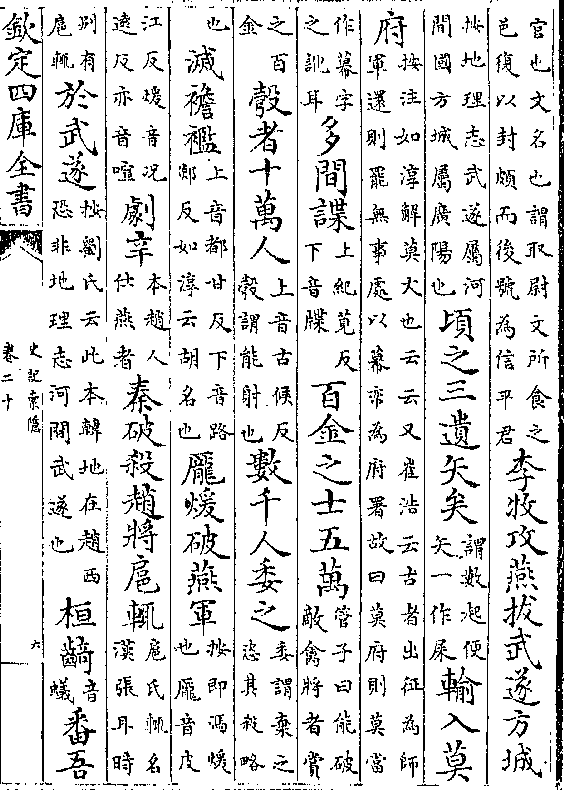 官也文名也謂取尉文所食之邑復以封頗而後號為信平君李牧攻燕拔武遂方城
按地理志武遂屬河間國方城屬廣陽也頃之三遺矢矣謂數起便矢一作屎輸入莫
府按注如淳解莫大也云云又崔浩云古者出征為師軍還則罷無事處以幕帟為府署故曰莫府則莫當
作幕字之訛耳多間諜上紀莧反下音牒百金之士五萬管子曰能破敵禽將者賞
之百金彀者十萬人上音古候反彀謂能射也數千人委之委謂棄之恣其殺略
也滅襜襤上音都甘反下音路郯反如淳云胡名也龐煖破燕軍按即馮煖也龐音皮
江反煖音況遠反亦音喧劇辛本趙人仕燕者秦破殺趙將扈輒扈氏輒名漢張耳時
別有扈輒於武遂按劉氏云此本韓地在趙西恐非地理志河間武遂也桓齮音蟻番吾
欽定四庫全書
史記索隱
卷二十
六